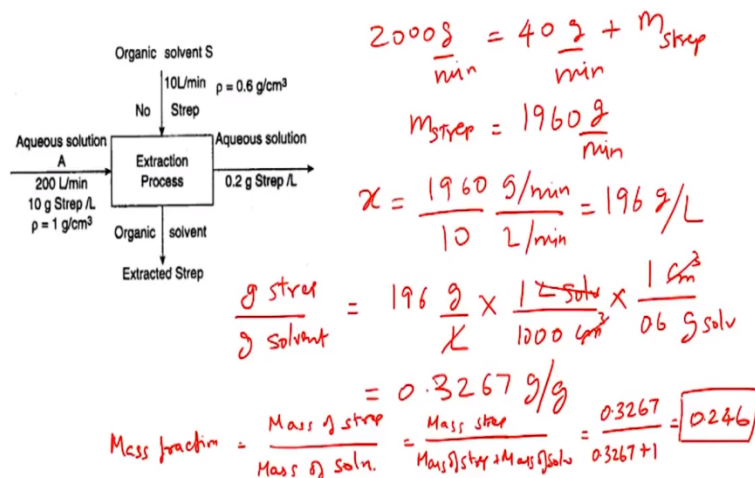 Organic solvent S
10L/min ρ = 0.6 g/cm³
No Strep
Aqueous solution
A
200 L/min
10 g Strep /L
ρ = 1 g/cm³
Extraction
Process
Aqueous solution
0.2 g Strep /L
Organic solvent
Extracted Strep
2000 g/min = 40 g/min + m strep
m strep = 1960 g/min
x = 1960/10 g/min / L/min = 196 g/L
g strep / g solvent = 196 g/L × 1 L solv / 1000 cm³ × 1 cm³ / 0.6 g solv
= 0.3267 g/g
Mass fraction = Mass of strep / Mass of soln. = Mass strep / Mass of strep + Mass of solv = 0.3267 / 0.3267+1 = 0.246